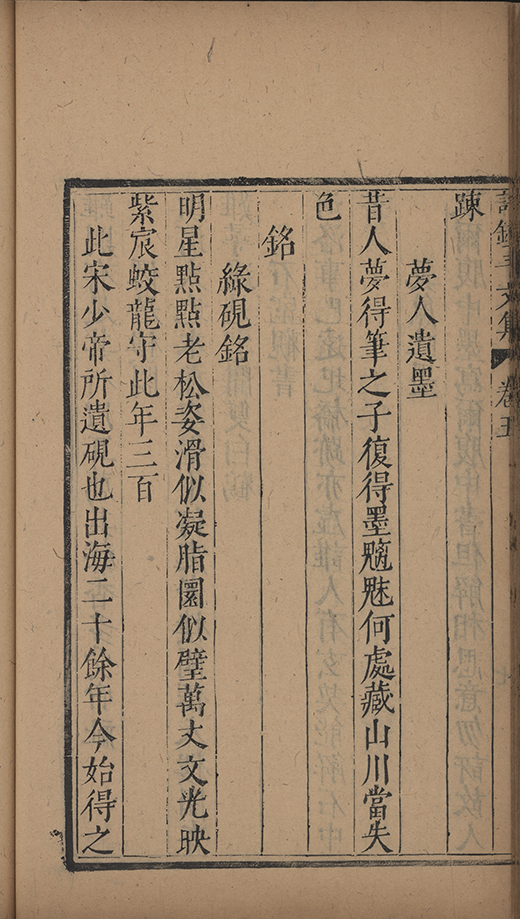 卷五
疎
夢人遺墨
昔人夢得筆之子復得墨魑魅何處藏山川當失
色
銘
綠硯銘
明星點點老松姿滑似凝脂圓似璧萬丈文光映
紫宸蛟龍守此年三百
此宋少帝所遺硯也出海二十餘年今始得之